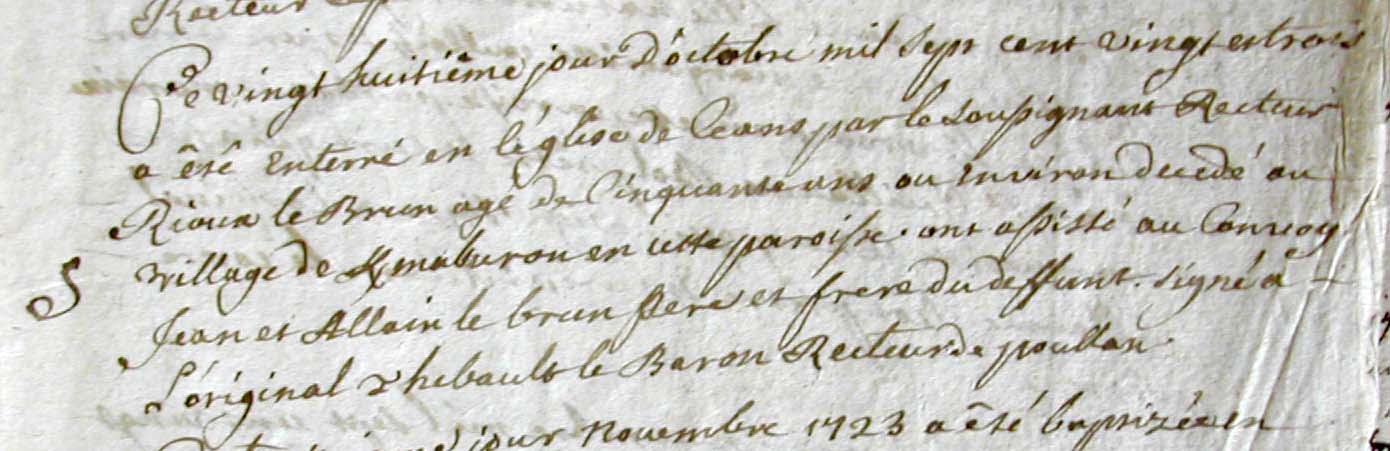 Recteur
Ce vingt huitiême jour D'octobre mil sept cent vingt et trois
a êtê enterré en l'église de Ceans par le soussignant Recteur
Rioux le Brun agé de Cinquante ans ou environ decedé au
village de en cette paroisse. ont assisté au Convoy
Jean et Allain le brun pere et frere du deffunt. signé a
L'original Thebault le Baron Recteur de poullan.
jour Novembre 1723 a êté baptizée en
S